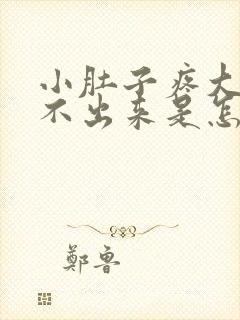 小肚子疼大
不出来是怎
鄭鲁